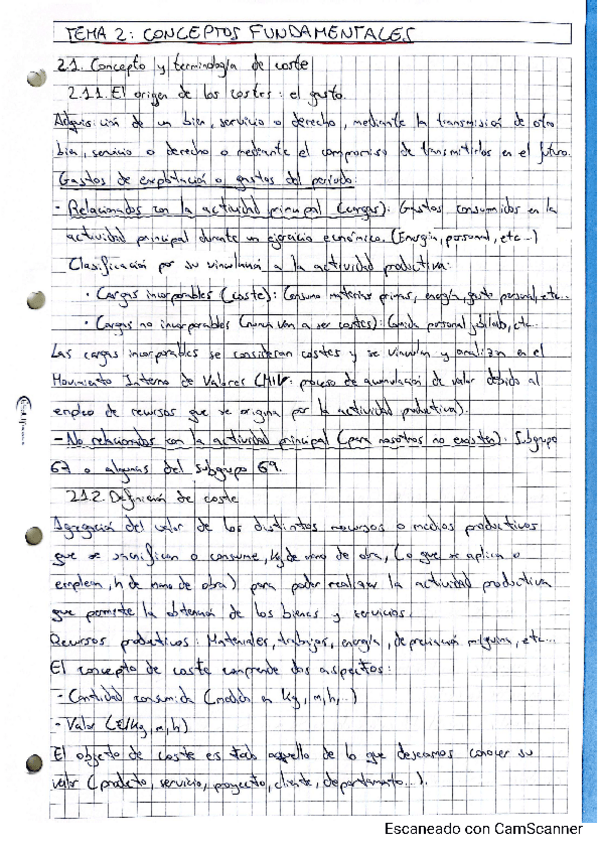 TEMA 2: CONCEPTOS FUNDAMENTALES
2.1. Concepto y terminología de coste
2.1.1. El origen de los costes: el gasto.
Adquisición de un bien, servicio o derecho, mediante la transmisión de otro
bien, servicio o derecho o mediante el compromiso de transmitirlos en el futuro.
Gastos de explotación o gastos del periodo:
- Relacionados con la actividad principal (cargas): Gastos consumidos en la
actividad principal durante un ejercicio económico. (Energía, personal, etc...)
Clasificación por su vinculación a la actividad productiva:
· Cargas incorporables (coste): Consumo materias primas, energía, gasto personal, etc...
· Cargas no incorporables (nunca van a ser costes): Comida personal jubilado, etc...
Las cargas incorporables se consideran costes y se vinculan y analizan en el
Movimiento Interno de Valores (MIV: proceso de acumulación de valor debido al
empleo de recursos que se origina por la actividad productiva).
- No relacionados con la actividad principal (para nosotros no existen): Subgrupo
67 o algunas del subgrupo 69.
2.1.2. Definición de coste
Agregación del valor de los distintos recursos o medios productivos
que se sacrifican o consume, kg de mano de obra, (o que se aplica o
emplean, h de mano de obra) para poder realizar la actividad productiva
que permite la obtención de los bienes y servicios.
Recursos productivos: Materiales, trabajos, energía, depreciación máquina, etc...
El concepto de coste comprende dos aspectos:
- Cantidad consumida (medida en kg, m, h, ..)
- Valor (€/kg, m, h)
El objeto de coste es todo aquello de lo que deseamos conocer su
valor (producto, servicio, proyecto, cliente, departamento...).
Escaneado con CamScanner